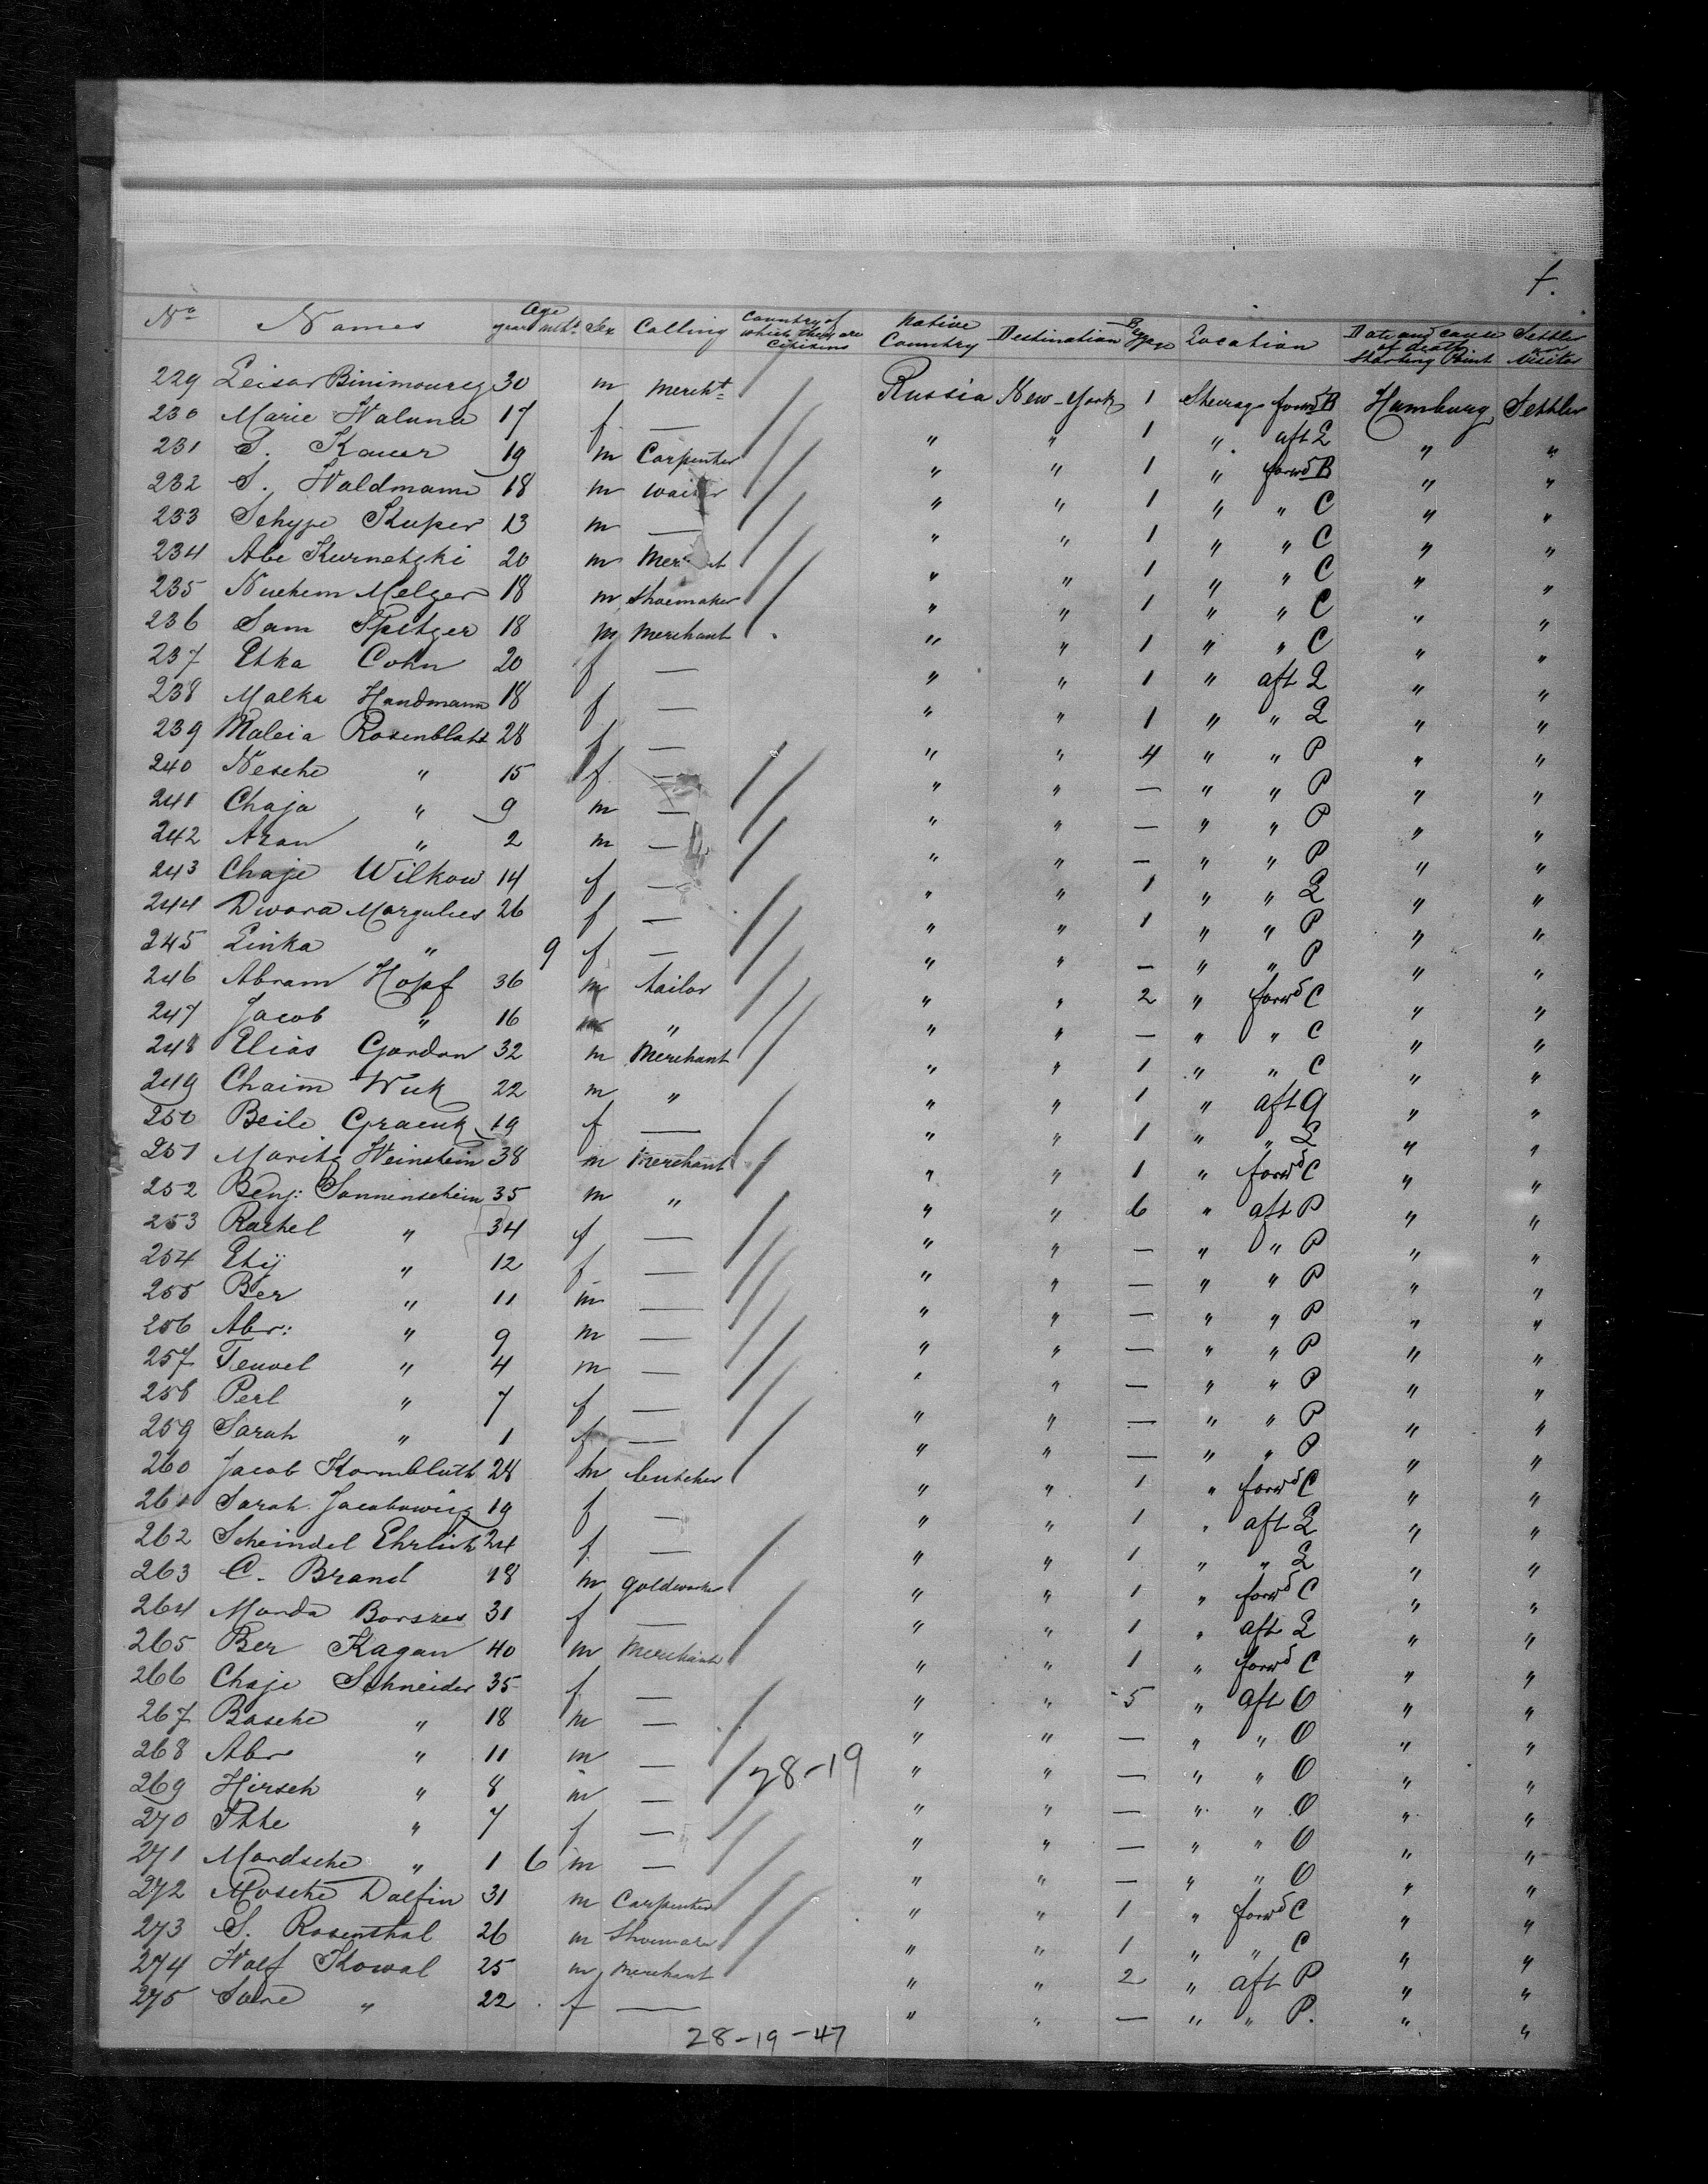 f.
No Names Age years mths Sex Calling Country of which they are Citizens Native Country Destination Baggage Location Date and cause of death Starting Point Settler or Visitor
229 Leisor Binimoureg 30 m Mercht Russia New-York 1 Steerage forwd B Hamburg Settler
230 Marie Waluna 17 f — " " 1 " aft Q " "
231 S. Kauer 19 m Carpenter " " 1 " forwd B " "
232 S. Waldmann 18 m waiter " " 1 " " C " "
233 Schyje Kuper 13 m — " " 1 " " C " "
234 Abe Kurnetzki 20 m " " 1 " " C " "
235 Nuchem Melzer 18 m Shoemaker " " 1 " " C " "
236 Sam Spitzer 18 m Merchant " " 1 " " C " "
237 Etka Cohn 20 f — " " 1 " aft Q " "
238 Malka Handmann 18 f — " " 1 " " Q " "
239 Maleia Rosenblatt 28 f — " " 4 " " P " "
240 Nesche " 15 f — " " — " " P " "
241 Chaja " 9 m — " " — " " P " "
242 Aran " 2 m — " " — " " P " "
243 Chaje Wilkow 14 f — " " 1 " " Q " "
244 Dwora Margulies 26 f — " " 1 " " P " "
245 Linka " 9 f — " " — " " P " "
246 Abram Hopf 36 m tailor " " 2 " forwd C " "
247 Jacob " 16 m " " " — " " C " "
248 Elias Gordon 32 m Merchant " " 1 " " C " "
249 Chaim Wuk 22 m " " " 1 " aft Q " "
250 Beile Graenk 19 f — " " 1 " " Q " "
251 Moritz Weinstein 38 m Merchant " " 1 " forwd C " "
252 Benj: Sonnenschein 35 m " " " 6 " aft P " "
253 Rachel " 34 f — " " — " " P " "
254 Etij " 12 f — " " — " " P " "
255 Ber " 11 m — " " — " " P " "
256 Abr: " 9 m — " " — " " P " "
257 Teuvel " 4 m — " " — " " P " "
258 Perl " 7 f — " " — " " P " "
259 Sarah " 1 f — " " — " " P " "
260 Jacob Kornbluth 28 m butcher " " 1 " forwd C " "
261 Sarah Jacobowicz 19 f — " " 1 " aft Q " "
262 Scheindel Ehrlich 24 f — " " 1 " " Q " "
263 C. Brand 18 m goldworker " " 1 " forwd C " "
264 Morda Borszes 31 f — " " 1 " aft Q " "
265 Ber Kagan 40 m Merchant " " 1 " forwd C " "
266 Chaje Schneider 35 f — " " 5 " aft O " "
267 Basche " 18 m — " " — " " O " "
268 Abr " 11 m — 28-19 " " — " " O " "
269 Hirsch " 8 m — " " — " " O " "
270 " 7 f — " " — " " O " "
271 Mordsche " 1 6 m — " " — " " O " "
272 Mosche Dalfin 31 m Carpenter " " 1 " forwd C " "
273 S. Rosenthal 26 m " " 1 " " C " "
274 Wolf Kowal 25 m Merchant " " 2 " aft P " "
275 Sore " 22 f — " " — " " P. " "
28-19-47